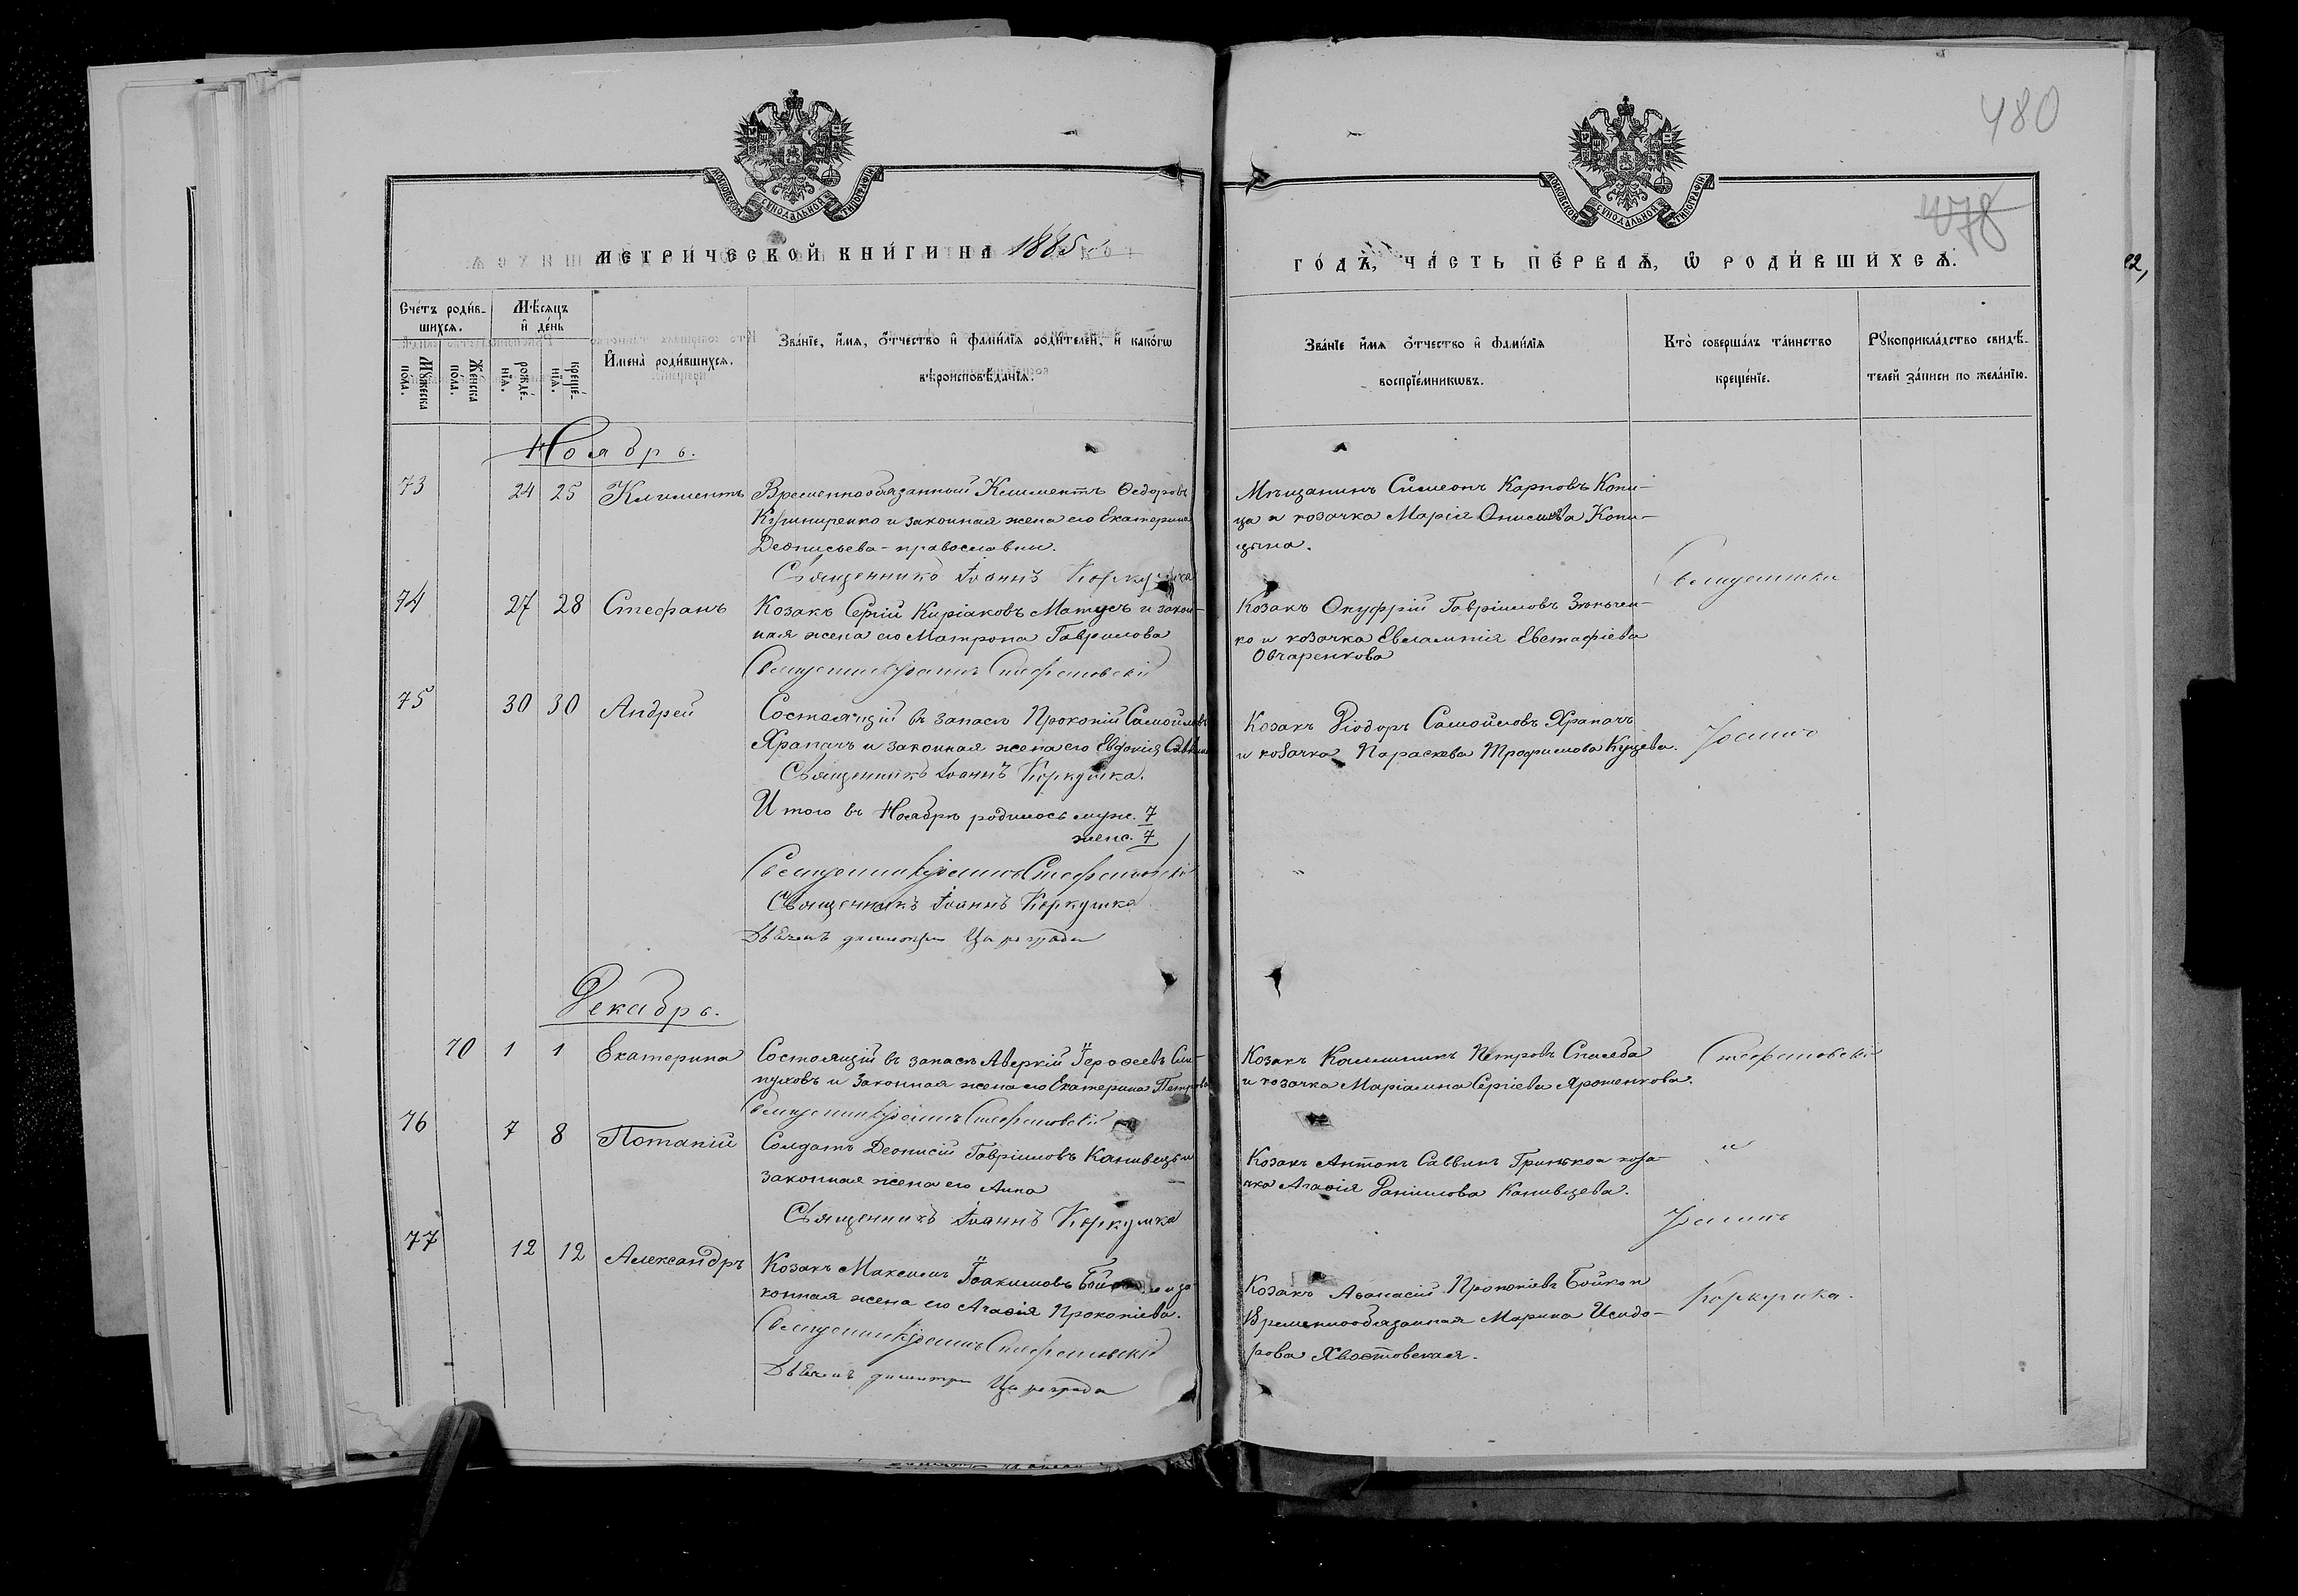 480
478
МОСКОВСКОЙ СѴНОДАЛЬНОЙ ТИПОГРАФІИ
МОСКОВСКОЙ СѴНОДАЛЬНОЙ ТИПОГРАФІИ
МЕТРИ́ЧЕСКОЙ КНИ́ГИ НА 1885
ГО́ДЪ, ЧА́СТЬ ПЕ́РВАѦ, Ѿ РОДИ́ВШИХСѦ.
Сче́тъ роди́в-
шихсѧ.
Мѣ́сѧцъ
и҆ де́нь
Мꙋ́жеска по́ла.
Же́нска по́ла.
рожде́-нїѧ.
креще́-нїѧ.
И҆мена̀ роди́вшихсѧ.
Зва́нїе, и҆́мѧ, ѻ҆́тчество и҆ фами́лїѧ роди́телей, и҆ како́гѡ
вѣроисповѣ́данїѧ.
Зва́нїе и҆́мѧ ѻ҆́тчество и҆ фами́лїѧ
воспрїе́мникѡвъ.
Кто̀ соверша́лъ та́инство
креще́нїе.
Рꙋкоприкла́дство свидѣ́-
телей за́писи по жела́нїю.
Ноябрь.
73 24 25 Климентъ Временнообязанный Климентъ Ѳедоровъ
Кушниренко и законная жена его Екатерина
Деонисьева - православны.
Священникъ Іоаннъ Коркушка
Мѣщанинъ Симеонъ Карповъ Копи-
ца и козачка Марія Онисимова Копи-
цына.
Священники
74 27 28 Стефанъ Козакъ Сергій Киріаковъ Матусъ и закон-
ная жена его Матрона Гаврилова
Священникъ Іоаннъ Стефановскій
Козакъ Онуфрій Гавріиловъ Зюньчен-
ко и козачка Евлампія Евстафіева
Овчаренкова
75 30 30 Андрей Состоящій въ запасѣ Прокопій Самойловъ
Храпачъ и законная жена его Евдокія
Священникъ Іоаннъ Коркушка.
Козакъ Ѳіодоръ Самойловъ Храпачъ
и козачка Параскева Трофимова Куцева.
Іоаннъ
Итого въ Ноябрѣ родилось муж. 7
женс. 7
Священникъ Іоаннъ Стефановскій
Священникъ Іоаннъ Коркушка
Дьячекъ Димитрій Цареградъ
Декабрь.
70 1 1 Екатерина Состоящій въ запасѣ Аверкій Іероѳеевъ Сли-
пуховъ и законная жена его Екатерина Петрова
Священникъ Іоаннъ Стефановскій
Козакъ Каллиникъ Петровъ Сталба
и козачка Маріамна Сергіева Ярошенкова.
Стефановскій
76 7 8 Потапій Солдатъ Деонисій Гавріиловъ Канивецъ и
законная жена его Анна
Священникъ Іоаннъ Коркушка
Козакъ Антонъ Саввинъ Гринько и коза-
чка Агаѳія Даніилова Канивцева.
и
Іоаннъ
77 12 12 Александръ Козакъ Максимъ Іоакимовъ и за-
конная жена его Агаѳія Прокопіева.
Священникъ Іоаннъ Стефановскій
Дьячекъ Димитрій Цареградъ
Козакъ Аѳанасій Прокопіевъ Бойко и
Временнообязанная Марина Исидо-
рова Хвостовская.
Коркушка.